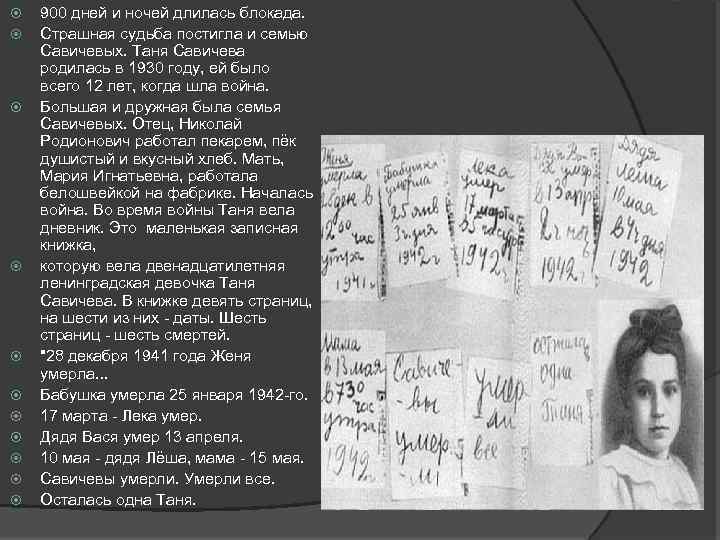 900 дней и ночей длилась блокада.
Страшная судьба постигла и семью
Савичевых. Таня Савичева
родилась в 1930 году, ей было
всего 12 лет, когда шла война.
Большая и дружная была семья
Савичевых. Отец, Николай
Родионович работал пекарем, пёк
душистый и вкусный хлеб. Мать,
Мария Игнатьевна, работала
белошвейкой на фабрике. Началась
война. Во время войны Таня вела
дневник. Это маленькая записная
книжка,
которую вела двенадцатилетняя
ленинградская девочка Таня
Савичева. В книжке девять страниц,
на шести из них - даты. Шесть
страниц - шесть смертей.
"28 декабря 1941 года Женя
умерла...
Бабушка умерла 25 января 1942-го.
17 марта - Лека умер.
Дядя Вася умер 13 апреля.
10 мая - дядя Лёша, мама - 15 мая.
Савичевы умерли. Умерли все.
Осталась одна Таня.
Женя
умерла
28 дек в
12 00 час
утра
1941 г
Бабушка
умерла
25 янв
3 ч дня
1942 г
Лека
умер
17 марта
в 5 час утра
1942 г
Дядя Вася
умер
в 13 апр
2 ч ноч
1942 г
Дядя
Леша
10 мая
в 4 ч дня
1942
Мама
в 13 мая
в 7 30 час
утра
1942 г
Савиче
вы
умер
ли
умер
ли
все
осталась
одна
Таня